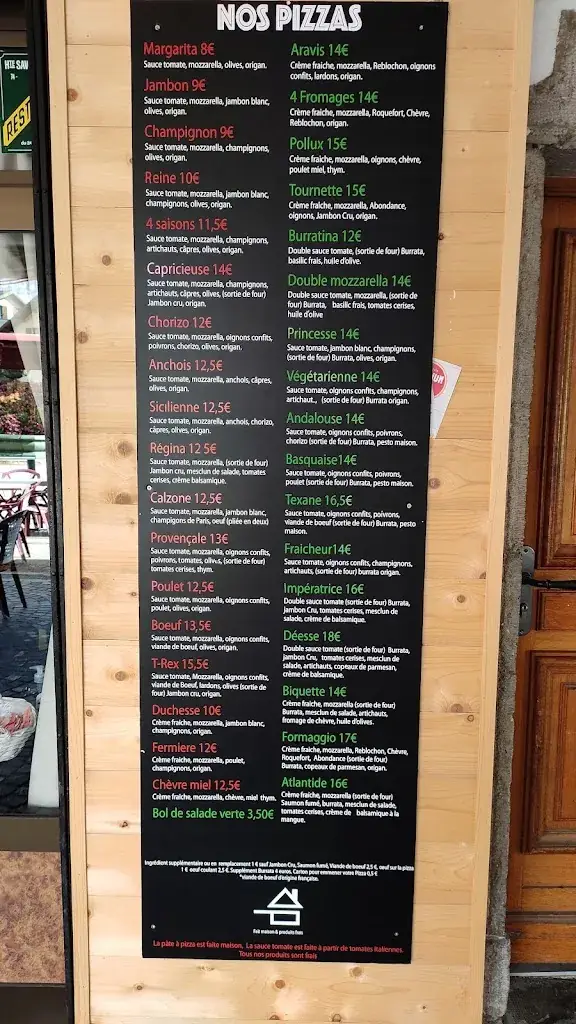 NOS PIZZAS
Margarita 8€
Sauce tomate, mozzarella, olives, origan.
Jambon 9€
Sauce tomate, mozzarella, jambon blanc,
olives, origan.
Champignon 9€
Sauce tomate, mozzarella, champignons,
olives, origan.
Reine 10€
Sauce tomate, mozzarella, jambon blanc,
champignons, olives, origan.
4 saisons 11,5€
Sauce tomate, mozzarella, champignons,
artichauts, câpres, olives, origan.
Capricieuse 14€
Sauce tomate, mozzarella, champignons,
artichauts, câpres, olives, (sortie de four)
Jambon cru, origan.
Chorizo 12€
Sauce tomate, mozzarella, oignons confits,
poivrons, chorizo, olives, origan.
Anchois 12,5€
Sauce tomate, mozzarella, anchois, câpres,
olives, origan.
Sicilienne 12,5€
Sauce tomate, mozzarella, anchois, chorizo,
câpres, olives, origan.
Régina 12 5€
Sauce tomate, mozzarella, (sortie de four)
Jambon cru, mesclun de salade, tomates
cerises, crème balsamique.
Calzone 12,5€
Sauce tomate, mozzarella, jambon blanc,
champigons de Paris, oeuf (pliée en deux)
Provençale 13€
Sauce tomate, mozzarella, oignons confits,
poivrons, tomates, olives, (sortie de four)
tomates cerises, thym.
Poulet 12,5€
Sauce tomate, mozzarella, oignons confits,
poulet, olives, origan.
Boeuf 13,5€
Sauce tomate, mozzarella, oignons confits,
viande de boeuf, olives, origan.
T-Rex 15,5€
Sauce tomate, Mozzarella, oignons confits,
viande de Boeuf, lardons, olives (sortie de
four) Jambon cru, origan.
Duchesse 10€
Crème fraiche, mozzarella, jambon blanc,
champignons, origan.
Fermiere 12€
Crème fraiche, mozzarella, poulet,
champignons, origan.
Chèvre miel 12,5€
Crème fraîche, mozzarella, chèvre, miel thym.
Bol de salade verte 3,50€
Aravis 14€
Crème fraiche, mozzarella, Reblochon, oignons
confits, lardons, origan.
4 Fromages 14€
Crème fraiche, mozzarella, Roquefort, Chèvre,
Reblochon, origan.
Pollux 15€
Crème fraîche, mozzarella, oignons, chèvre,
poulet miel, thym.
Tournette 15€
Crème fraîche, mozzarella, Abondance,
oignons, Jambon Cru, origan.
Burratina 12€
Double sauce tomate, (sortie de four) Burrata,
basilic frais, huile d'olive.
Double mozzarella 14€
Double sauce tomate, mozzarella, (sortie de
four) Burrata, basilic frais, tomates cerises,
huile d'olive
Princesse 14€
Sauce tomate, jambon blanc, champignons,
(sortie de four) Burrata, olives, origan.
Végétarienne 14€
Sauce tomate, oignons confits, champignons,
artichaut., (sortie de four) Burrata origan.
Andalouse 14€
Sauce tomate, oignons confits, poivrons,
chorizo (sortie de four) Burrata, pesto maison.
Basquaise14€
Sauce tomate, oignons confits, poivrons,
poulet (sortie de four) Burrata, pesto maison.
Texane 16,5€
Sauce tomate, oignons confits, poivrons,
viande de boeuf (sortie de four) Burrata, pesto
maison.
Fraicheur14€
Sauce tomate, oignons confits, champignons,
artichauts, (sortie de four) burrata origan.
Impératrice 16€
Double sauce tomate (sortie de four) Burrata,
Jambon Cru, tomates cerises, mesclun de
salade, crème de balsamique.
Déesse 18€
Double sauce tomate (sortie de four) Burrata,
jambon Cru, tomates cerises, mesclun de
salade, artichauts, copeaux de parmesan,
crème de balsamique.
Biquette 14€
Crème fraiche, mozzarella (sortie de four)
Burrata, mesclun de salade, artichauts,
fromage de chèvre, huile d'olives.
Formaggio 17€
Crème fraiche, mozzarella, Reblochon, Chèvre,
Roquefort, Abondance (sortie de four)
Burrata, copeaux de parmesan, origan.
Atlantide 16€
Crème fraiche, mozzarella (sortie de four)
Saumon fumé, burrata, mesclun de salade,
tomates cerises, crème de balsamique à la
mangue.
Ingrédient supplémentaire ou en remplacement 1 € sauf Jambon Cru, Saumon fumé, Viande de boeuf 2,5 €, oeuf sur la pizza
1 € oeuf coulant 2,5 €. Supplément Burrata 4 euros. Carton pour emmener votre Pizza 0,5 €
*viande de boeuf d'origine française.
Fait maison & produits frais
La pâte à pizza est faite maison, La sauce tomate est faite à partir de tomates Italiennes.
Tous nos produits sont frais
HTE SAV
REST